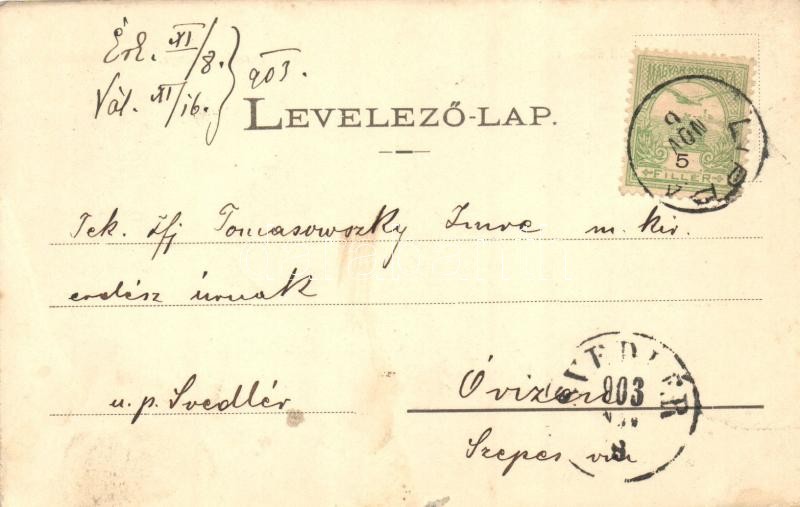 Érk. XI/8.
Vál. XI/16.
903.
LEVELEZŐ-LAP.
MAGYAR KIR. POSTA
5
FILLER
LIPPA
NOV
Tek. ifj Tomasowszky Imre m. kir.
erdész úrnak
u. p. Svedlér
Óvízen
Szepes vm
SVEDLÉR
903
NOV
8